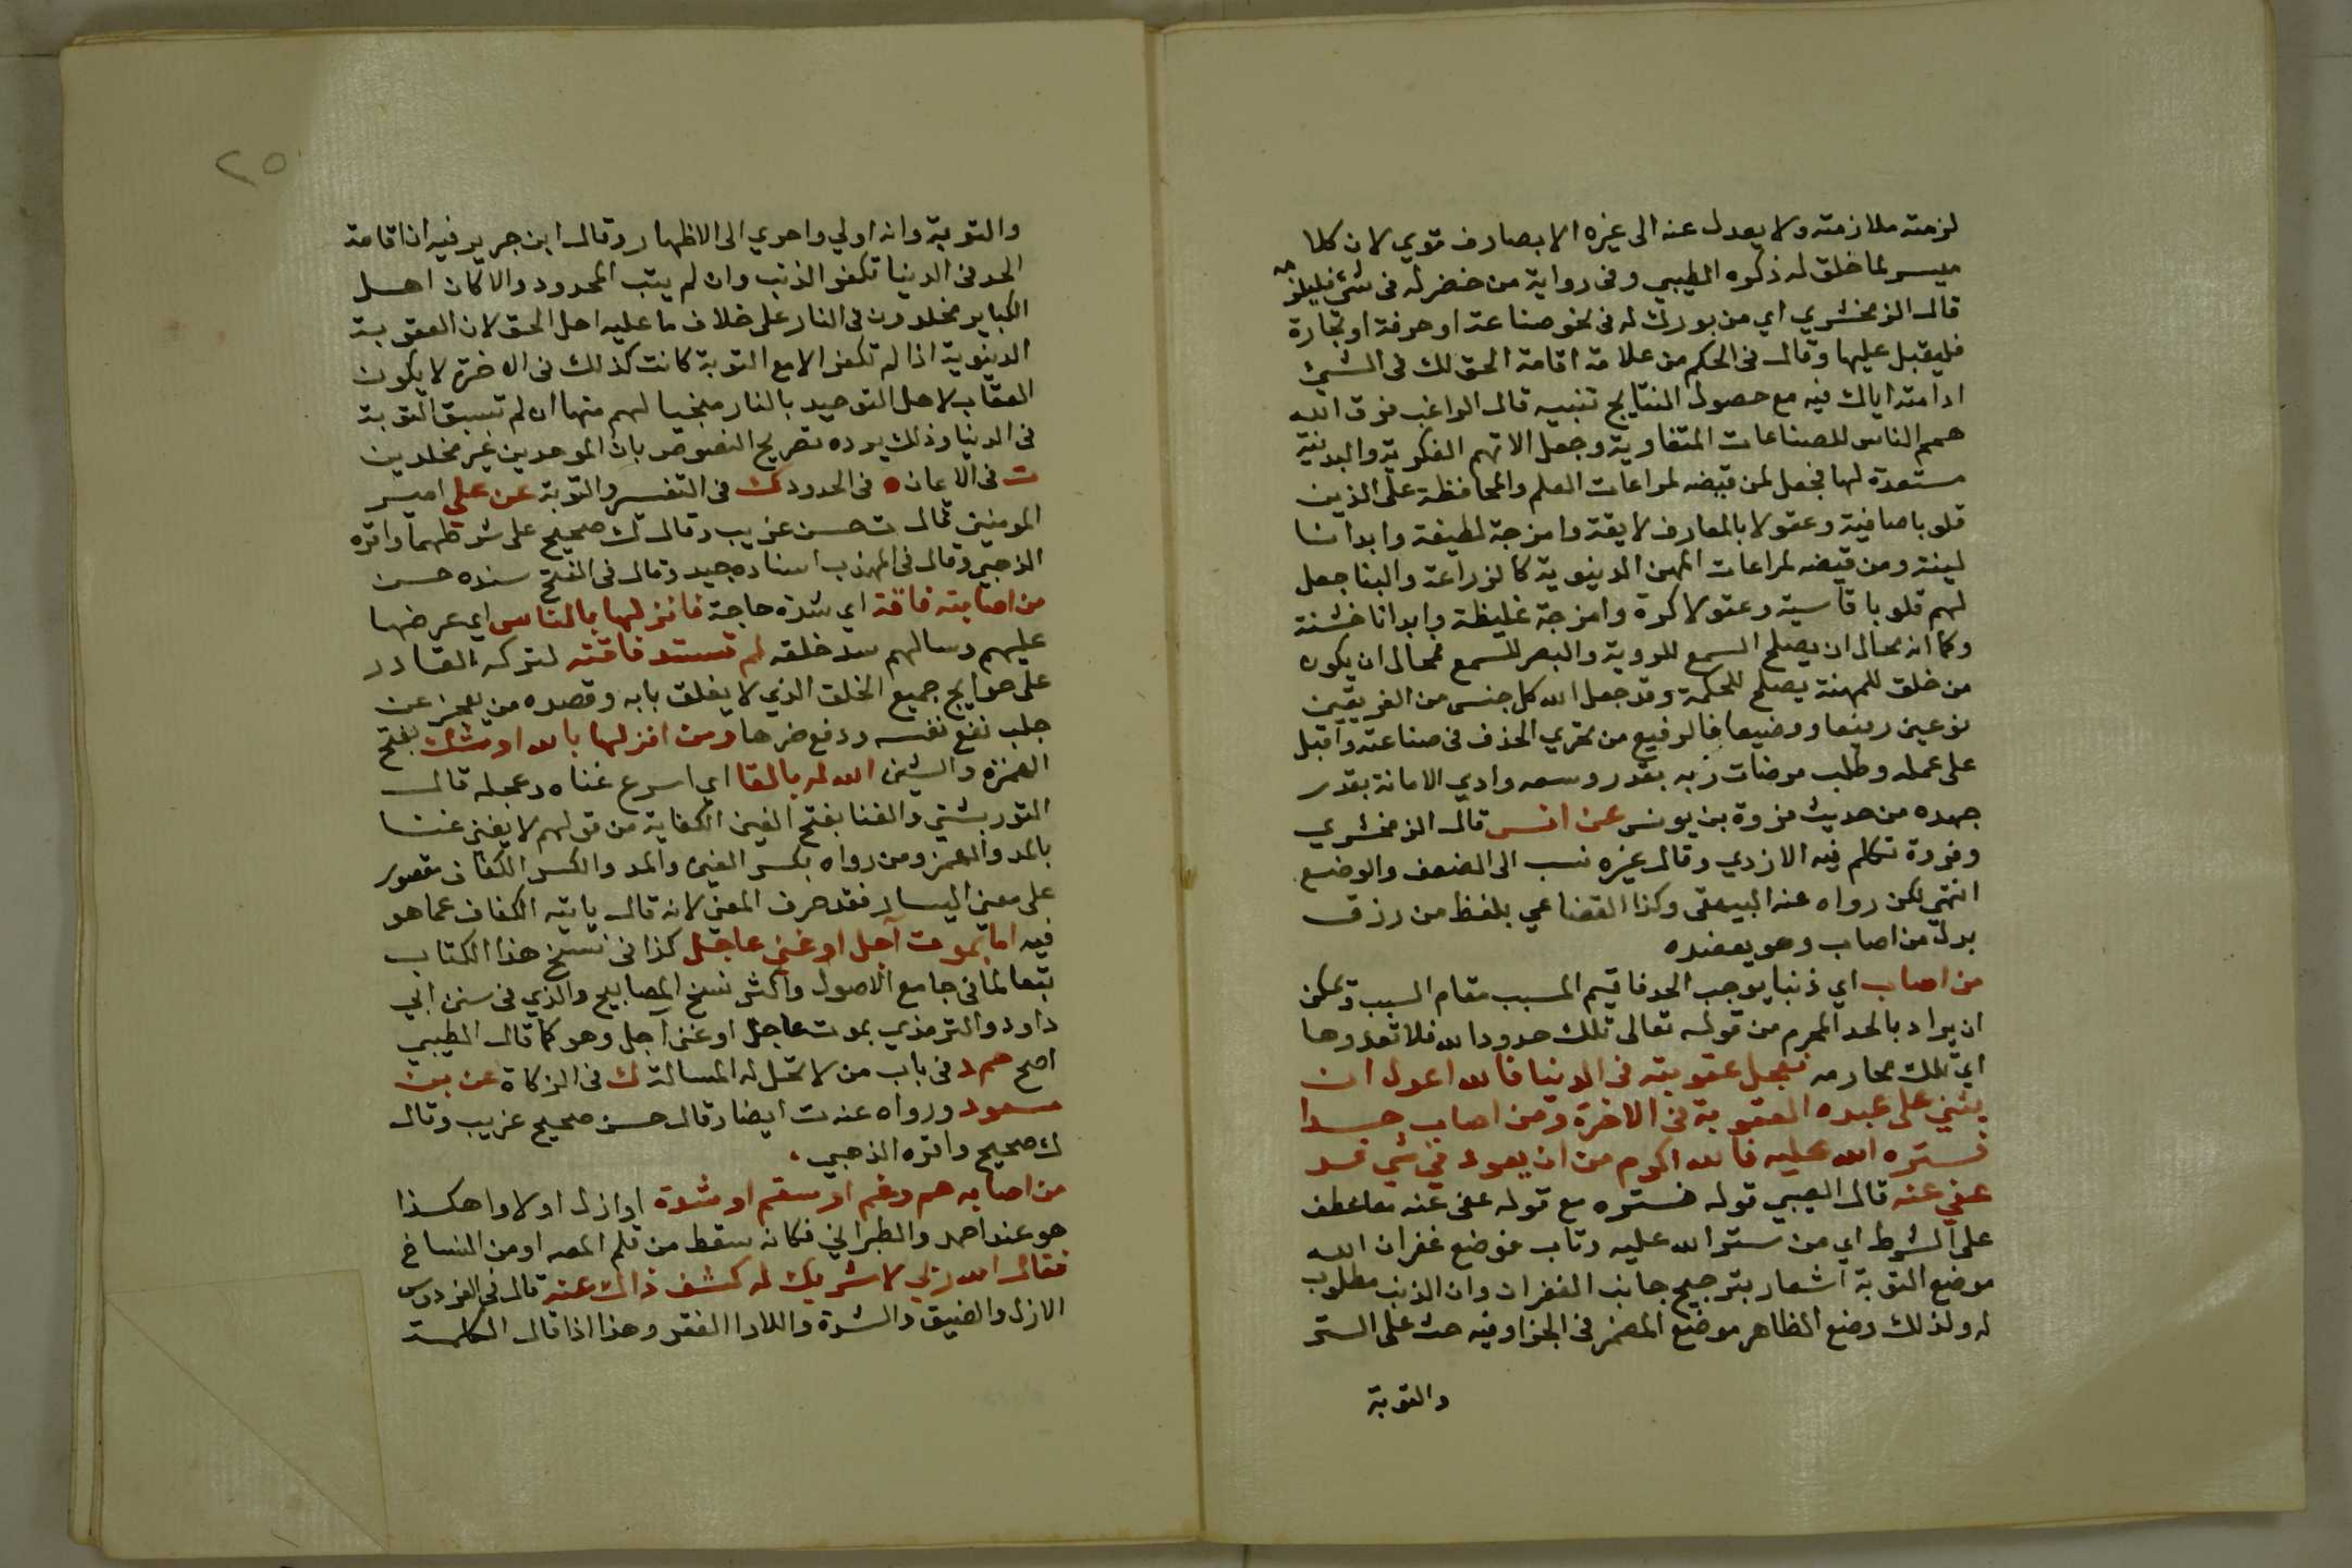 لزمته ملازمته ولا يعدل عنه الى غيره الا بصارف قوي لان كلا
ميسر لما خلق له ذكره الطيبي وفى رواية من حضر له فى شئ فليلزمه
قال الزمخشري اي من بورك له فى نحو صناعة او حرفة او تجارة
فليقبل عليها وقال فى الحكم من علامة اقامة الحق لك فى الشئ
ادامته اياك فيه مع حصول النتايج تنبيه قال الراغب فرق الله
همم الناس للصناعات المتفاوتة وجعل الاتهم الفكرية والبدنية
مستعدة لها فجعل لمن قيضه لمراعات العلم والمحافظة على الدين
قلوبا صافية وعقولا بالمعارف لايقة وامزجة لطيفة وابدانا
لينة ومن قيضه لمراعات المهن الدينوية كالزراعة والبنا جعل
لهم قلوبا قاسية وعقولا كزة وامزجة غليظة وابدانا خشنة
وكما انه محال ان يصلح السمع للروية والبصر للسمع فمحال ان يكون
من خلق للمهنة يصلح للحكمة وقد جعل الله كل جنس من الفريقين
نوعين رفيعا ووضيعا فالرفيع من تحري الحذف فى صناعته واقبل
على عمله وطلب مرضات ربه بقدر وسعه وادي الامانة بقدر
جهده من حديث فروة بن يونس عن انس قال الزمخشري
وفروة تكلم فيه الازدي وقال غيره نسب الى الضعف والوضع
انتهى لكن رواه عنه البيهقى وكذا القضاعي بلفظ من رزق
بدل من اصاب وهو يعضده
من اصاب اي ذنبا يوجب الحد فاقيم المسبب مقام السبب ويمكن
ان يراد بالحد المحرم من قوله تعالى تلك حدود الله فلا تعدوها
اي تلك محارمه فعجل عقوبته فى الدنيا فالله اعدل ان
يثني على عبده العقوبة فى الاخرة ومن اصاب حدا
فستره الله عليه فالله اكرم من ان يعود فى شئ قد
عفى عنه قال الطيبي قوله فستره مع قوله عفى عنه معا عطف
على الشرط اي من ستر الله عليه وتاب فوضع غفران الله
موضع التوبة اشعار بترجيح جانب الغفران وان الذنب مطلوب
له ولذلك وضع الظاهر موضع المضمر فى الجزا وفيه حث على الستر
والتوبة
٢٥
والتوبة وانه اولي واحري الى الاظهار وقال ابن جرير فيه ان اقامة
الحد فى الدنيا تكفر الذنب وان لم يتب المحدود والا لكان اهل
الكباير مخلدون فى النار على خلاف ما عليه اهل الحق لان العقوبة
الدينوية اذا لم تكفر الا مع التوبة كانت كذلك فى الاخرة لا يكون
العقاب لاهل التوحيد بالنار منجيا لهم منها ان لم تسبق التوبة
فى الدنيا وذلك يرده تصريح النصوص بان الموحدين غير مخلدين
ت فى الايمان ه فى الحدود ك فى التفسير والتوبة عن علي امير
المومنين قال ت حسن غريب وقال ك صحيح على شرطهما واقره
الذهبي وقال فى المهذب اسناده جيد وقال فى الفتح سنده حسن
من اصابته فاقة اي شدة حاجة فانزلها بالناس اي عرضها
عليهم وسالهم سد خلقه لم تستد فاقته لتركه القادر
على حوايج جميع الخلق الذي لا يغلق بابه وقصده من يعجز عن
جلب نفع نفسه ودفع ضرها ومن انزلها بالله اوشك بفتح
الهمزة والشين الله له بالغنا اي اسرع غناه وعجله قال
التوربشتي والغنا بفتح الغين الكفاية من قولهم لا يغنى غنا
بالمد والهمز ومن رواه بكسر الغين والمد والكسر الكفاف مقصور
على معنى اليسار فقد حرف المعنى لانه قال ياتيه الكفاف عما هو
فيه اما بموت آجل او غنى عاجل كذا فى نسخ هذا الكتاب
تبعا لما فى جامع الاصول واكثر نسخ المصابيح والذي فى سنن ابي
داود والترمذي بموت عاجل او غنى آجل وهو كما قال الطيبي
اصح حم د فى باب من لا تحل له المسالة ك فى الزكاة عن بن
مسعود ورواه عنه ت ايضا وقال حسن صحيح غريب وقال
ك صحيح واقره الذهبي
من اصابه هم وغم او سقم او شدة او ازل او لاوا هكذا
هو عند احمد والطبراني فكانه سقط من قلم المصه او من النساخ
فقال الله ربي لا شريك له كشف ذالك عنه قال فى الفردوس
الازل والضيق والشدة واللاوا الفقر وهذا اذا قال الكلمة